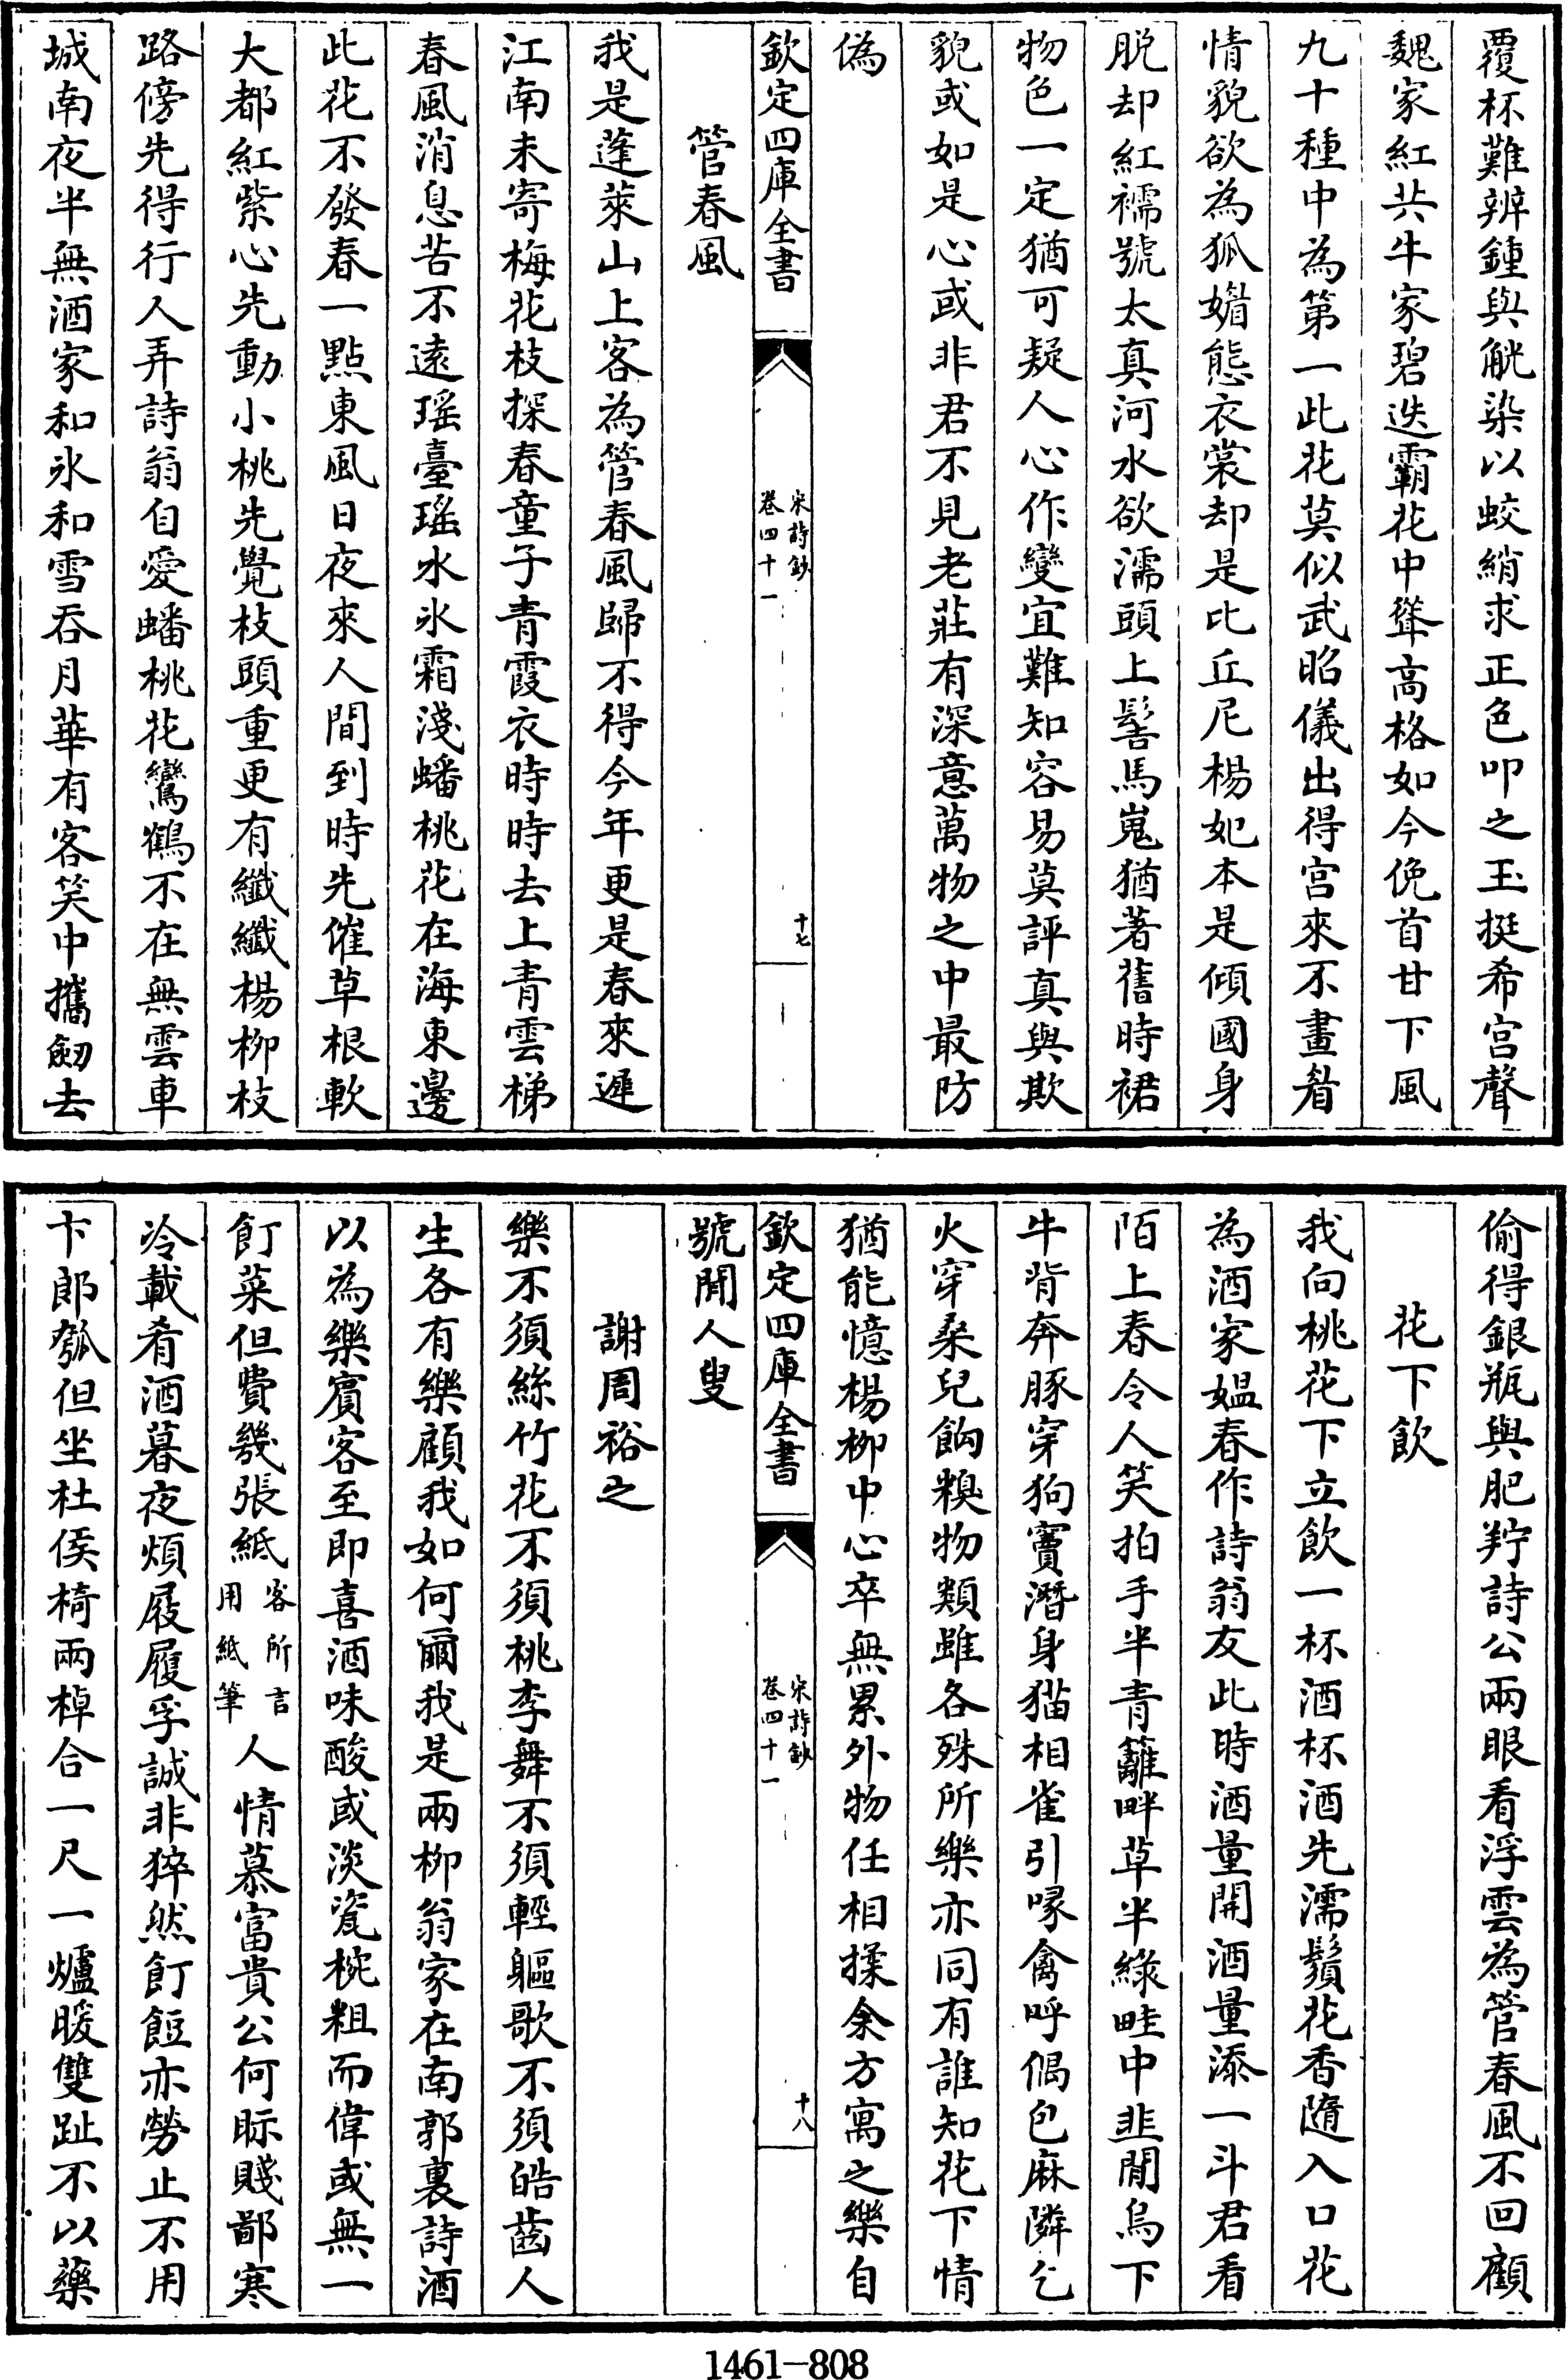 覆杯難辨鍾與觥染以蛟綃求正色叩之玉挺希宫聲
魏家紅共牛家碧迭霸花中聳高格如今俛首甘下風
九十種中為第一此花莫似武昭儀出得宫來不畫眉
情貌欲為狐媚態衣裳却是比丘尼楊妃本是傾國身
脱却紅襦號太真河水欲濡頭上髻馬嵬猶著舊時裙
物色一定猶可疑人心作變宜難知容易莫評真與欺
貌或如是心或非君不見老莊有深意萬物之中最防
偽
欽定四庫全書
宋詩鈔
卷四十一
十七
管春風
我是蓬萊山上客為管春風歸不得今年更是春來遲
江南未寄梅花枝探春童子青霞衣時時去上青雲梯
春風消息苦不逺瑶臺瑶水氷霜淺蟠桃花在海東邊
此花不發春一點東風日夜來人間到時先催草根軟
大都紅紫心先動小桃先覺枝頭重更有纖纖楊柳枝
路傍先得行人弄詩翁自愛蟠桃花鸞鶴不在無雲車
城南夜半無酒家和氷和雪吞月華有客笑中攜劒去
偷得銀瓶與肥羜詩公兩眼看浮雲為管春風不回顧
花下飲
我向桃花下立飲一杯酒杯酒先濡鬚花香隨入口花
為酒家媼春作詩翁友此時酒量開酒量添一斗君看
陌上春令人笑拍手半青籬畔草半緑畦中韭閒烏下
牛背奔豚穿狗竇潛身猫相雀引喙禽呼偶包麻隣乞
火穿桑兒餉糗物類雖各殊所樂亦同有誰知花下情
猶能憶楊柳中心卒無累外物任相揉余方寓之樂自
欽定四庫全書
宋詩鈔
卷四十一
十八
號閒人叟
謝周裕之
樂不須絲竹花不須桃李舞不須輕軀歌不須皓齒人
生各有樂顧我如何爾我是兩柳翁家在南郭裏詩酒
以為樂賓客至即喜酒味酸或淡瓷椀粗而偉或無一
飣菜但費幾張紙客所言用紙筆人情慕富貴公何眎賤鄙寒
冷載肴酒暮夜煩屐履孚誠非猝然飣餖亦勞止不用
卞郎瓠但坐杜侯椅兩棹合一尺一爐暖雙趾不以藥
1461-808